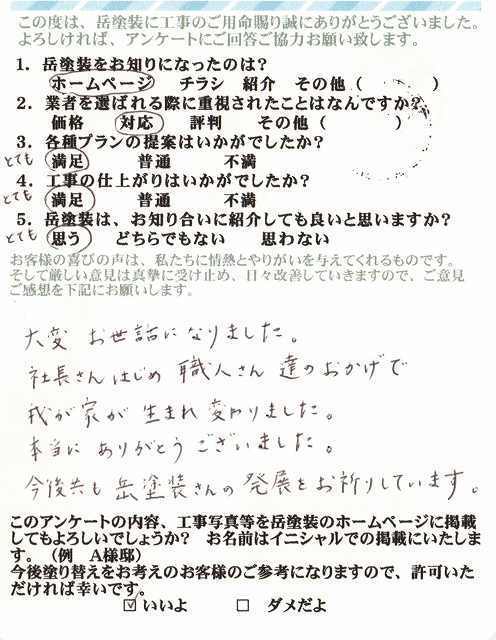 この度は、岳塗装に工事のご用命賜り誠にありがとうございました。
よろしければ、アンケートにご回答ご協力お願い致します。
1. 岳塗装をお知りになったのは?
ホームページ チラシ 紹介 その他 ( )
2. 業者を選ばれる際に重視されたことはなんですか?
価格 対応 評判 その他 ( )
3. 各種プランの提案はいかがでしたか?
とても 満足 普通 不満
4. 工事の仕上がりはいかがでしたか?
とても 満足 普通 不満
5. 岳塗装は、お知り合いに紹介しても良いと思いますか?
とても 思う どちらでもない 思わない
お客様の喜びの声は、私たちに情熱とやりがいを与えてくれるものです。
そして厳しい意見は真摯に受け止め、日々改善していきますので、ご意見
ご感想を下記にお願いします。
大変 お世話になりました。
社長さんはじめ 職人さん 達のおかげで
我が家が 生まれ 変わりました。
本当に ありがとう ございました。
今後共も 岳塗装さんの 発展をお祈りしています。
このアンケートの内容、工事写真等を岳塗装のホームページに掲載
してもよろしいでしょうか? お名前はイニシャルでの掲載にいたしま
す。(例 A様邸)
今後塗り替えをお考えのお客様のご参考になりますので、許可いた
だければ幸いです。
☑ いいよ □ ダメだよ